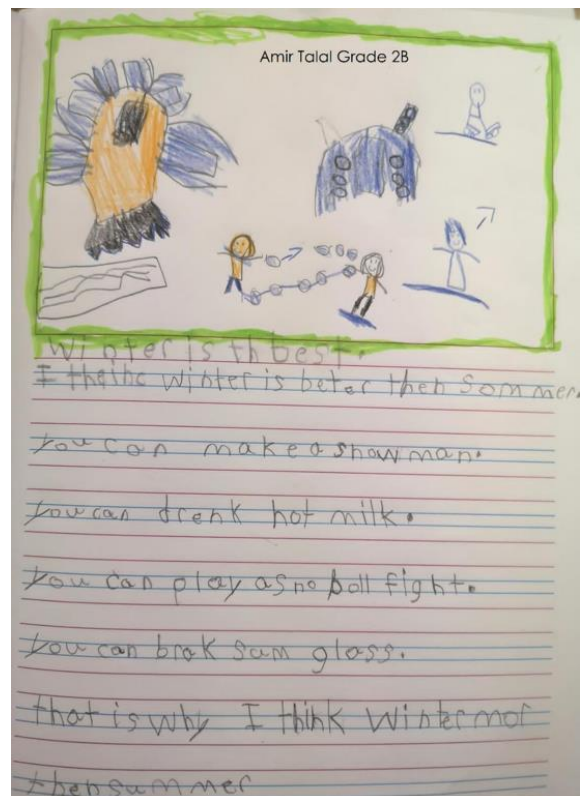 Amir Talal Grade 2B
Winter is th best.
I theinc winter is beter then sommer.
you can make a snow man.
you can drenk hot milk.
you can play a sno boll fight.
you can brak sum glass.
that is why I think Winter mor
then summer